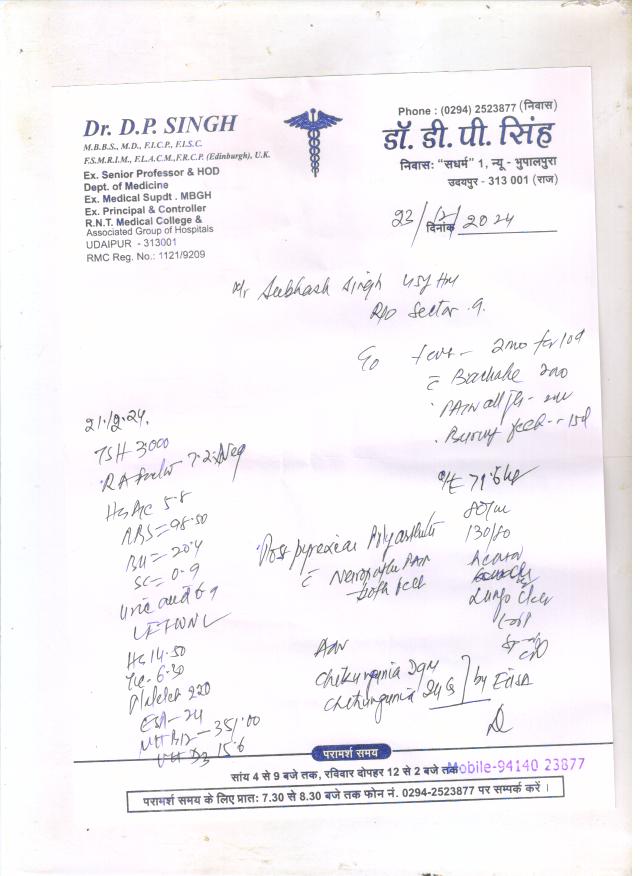 Dr. D.P. SINGH
M.B.B.S., M.D., F.I.C.P., F.I.S.C.
F.S.M.R.I.M., F.L.A.C.M.,F.R.C.P. (Edinburgh), U.K.
Ex. Senior Professor & HOD
Dept. of Medicine
Ex. Medical Supdt . MBGH
Ex. Principal & Controller
R.N.T. Medical College &
Associated Group of Hospitals
UDAIPUR - 313001
RMC Reg. No.: 1121/9209
Phone : (0294) 2523877 (निवास)
डॉ. डी. पी. सिंह
निवास: "सधर्म" 1, न्यू - भुपालपुरा
उदयपुर - 313 001 (राज)
दिनांक 23/12/2024
Mr Subhash Singh 45y
R/o Sector 9.
fever - 2mo for 10d
Backache 2mo
Pain all
Burning feet - 15d
TSH 3.000
RA factor 7.2 Neg
5.8
RBS = 98.50
BU = 20.4
SC = 0.9
Uric acid 6.9
LFT WNL
Hg 14.50
Tlc - 6.30
Platelet 220
ESR - 24
Vit B12 - 351.00
Vit D3 15.6
O/E 71.6 kg
80/m
130/80
Lungs Clear
Post pyrexial Polyarthritis
c Neuropathic Pain
both feet
Adv
Chikungunia IgM
Chikungunia IgG ] by Elisa
परामर्श समय
सांय 4 से 9 बजे तक, रविवार दोपहर 12 से 2 बजे तक
Mobile-94140 23877
परामर्श समय के लिए प्रात: 7.30 से 8.30 बजे तक फोन नं. 0294-2523877 पर सम्पर्क करें ।